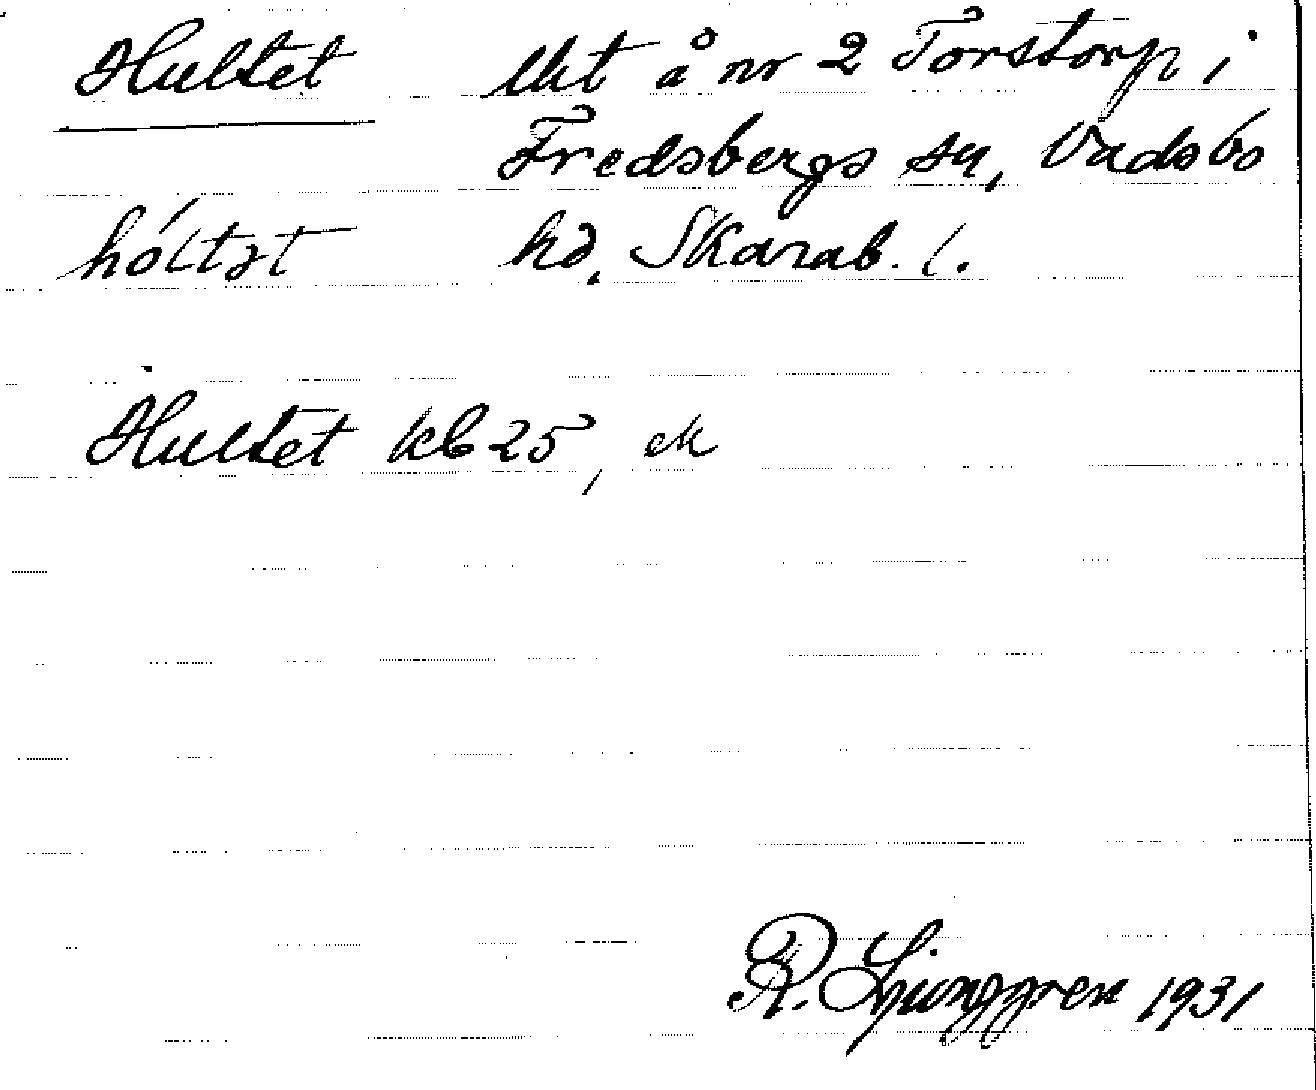 Hultet lht å nr 2 Torstorp i
Fredsbergs sn, Vadsbo
hóltət hd, Skarab. l.
Hultet kb 25, ek
R. Ljunggren 1931